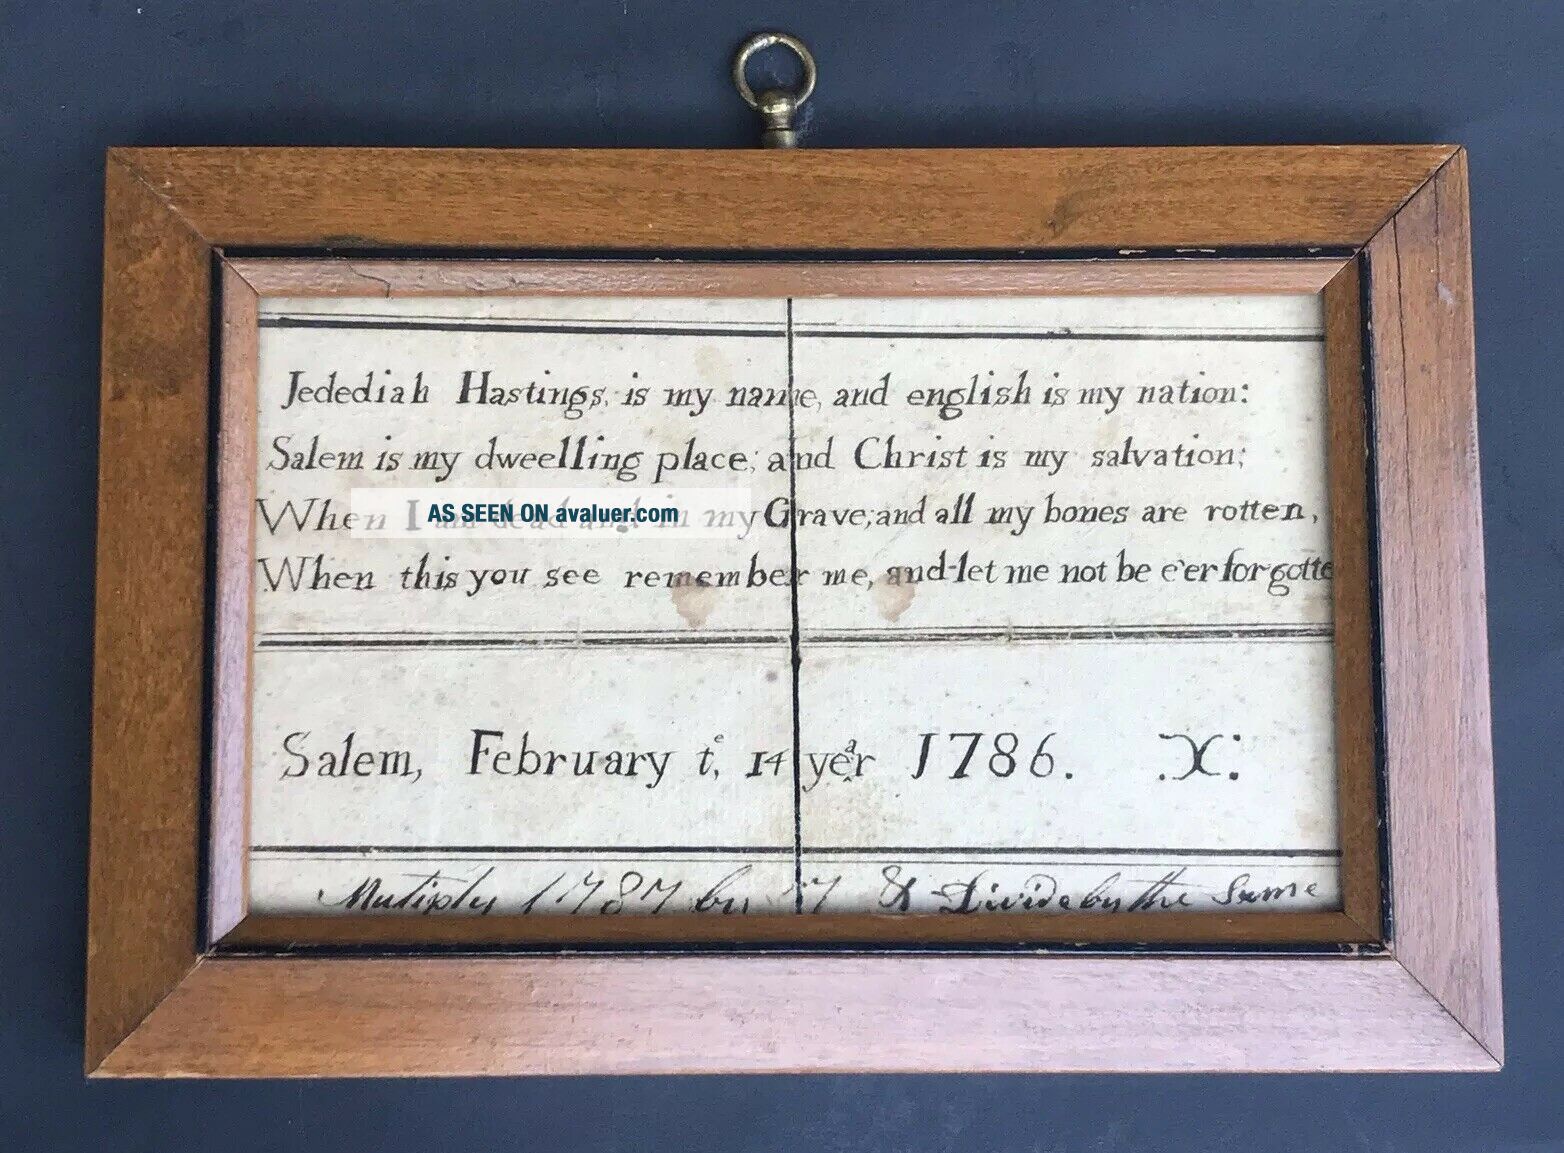 Jedediah Hastings, is my name, and english is my nation:
Salem is my dweelling place; and Christ is my salvation;
When I am dead and in my Grave; and all my bones are rotten,
AS SEEN ON avaluer.com
When this you see remember me, and let me not be e'er forgotte
Salem, February tᵉ, 14 yeᵃr 1786. .X:
Mutiply 1787 by 7 & Divide by the Same